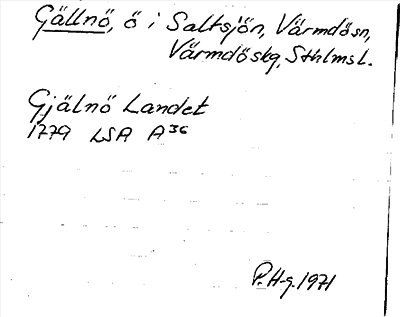 Gällnö, ö i Saltsjön, Värmdösn,
Värmdöskg, Sthlms l.
Gjälnö Landet
1779 LSA A36
P. H-g. 1971